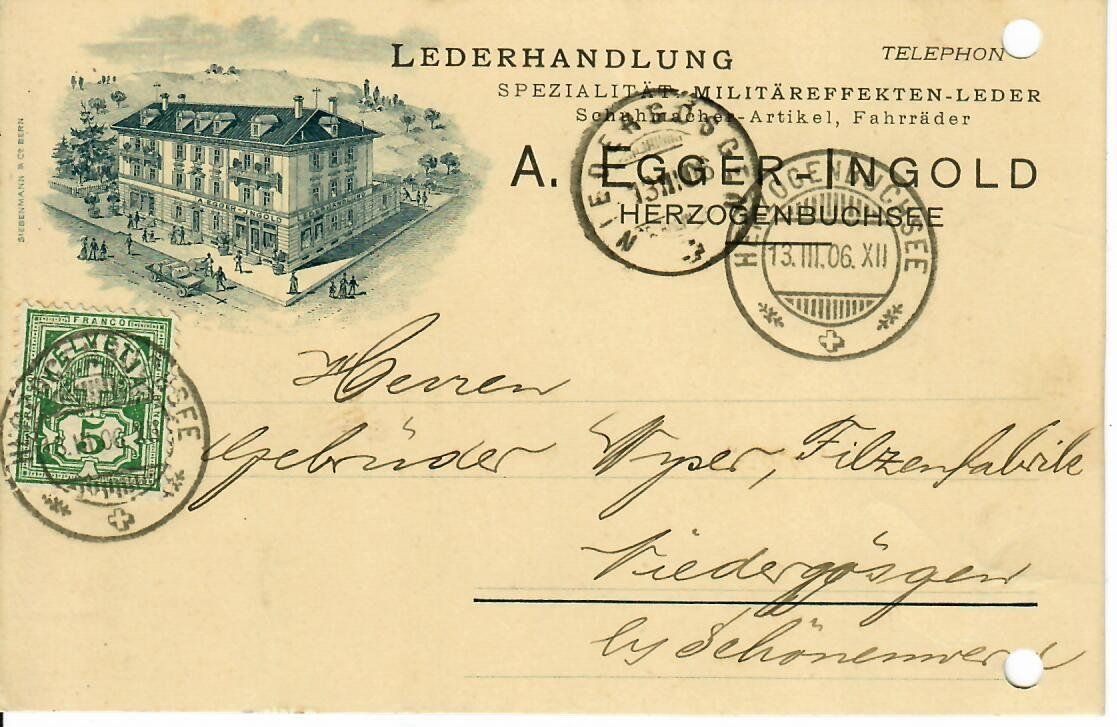 LEDERHANDLUNG
TELEPHON
SPEZIALITÄT MILITÄREFFEKTEN-LEDER
Schuhmacher-Artikel, Fahrräder
A. EGGER-INGOLD
HERZOGENBUCHSEE
SIEBENMANN & Co BERN
A. EGGER-INGOLD
NIEDERGÖSGEN
13.III.06
HERZOGENBUCHSEE
13.III.06.XII
FRANCO
HELVETIA
5
Herren
Gebrüder Wyser, Filzenfabrik
Niedergösgen
by Schönenwerd